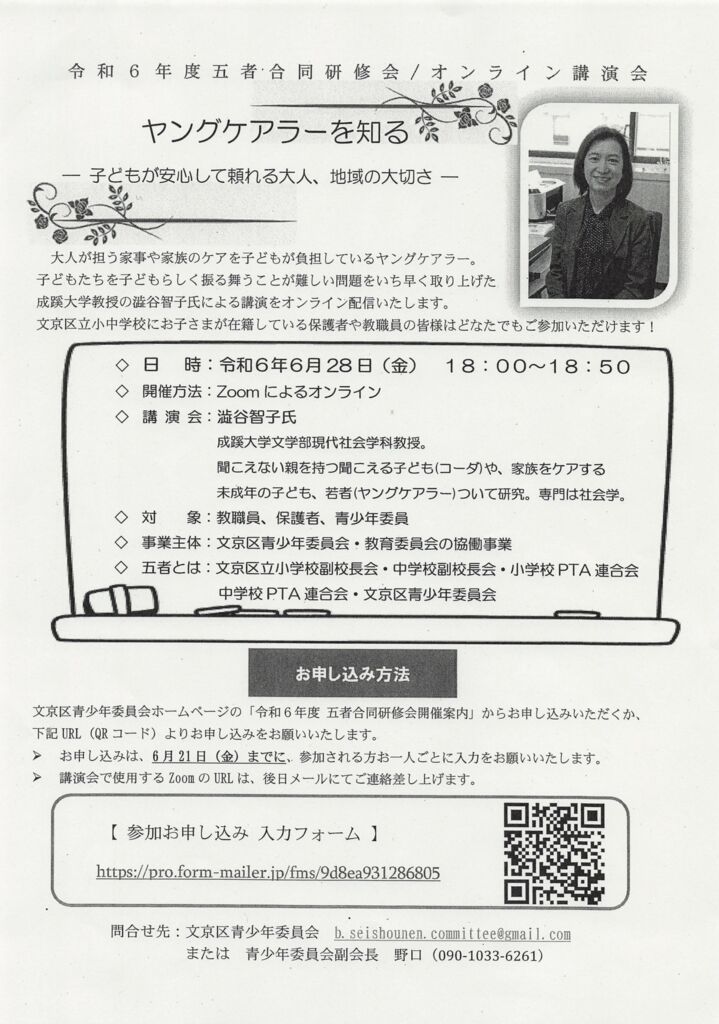 令和6年度五者合同研修会/オンライン講演会
ヤングケアラーを知る
― 子どもが安心して頼れる大人、地域の大切さ ―
大人が担う家事や家族のケアを子どもが負担しているヤングケアラー。
子どもたちを子どもらしく振る舞うことが難しい問題をいち早く取り上げた
成蹊大学教授の澁谷智子氏による講演をオンライン配信いたします。
文京区立小中学校にお子さまが在籍している保護者や教職員の皆様はどなたでもご参加いただけます！
◇ 日　時：令和6年6月28日（金）　18：00～18：50
◇ 開催方法：Zoomによるオンライン
◇ 講 演 会：澁谷智子氏
成蹊大学文学部現代社会学科教授。
聞こえない親を持つ聞こえる子ども(コーダ)や、家族をケアする
未成年の子ども、若者(ヤングケアラー)ついて研究。専門は社会学。
◇ 対　象：教職員、保護者、青少年委員
◇ 事業主体：文京区青少年委員会・教育委員会の協働事業
◇ 五者とは：文京区立小学校副校長会・中学校副校長会・小学校PTA連合会
中学校PTA連合会・文京区青少年委員会
お申し込み方法
文京区青少年委員会ホームページの「令和6年度 五者合同研修会開催案内」からお申し込みいただくか、
下記URL（QRコード）よりお申し込みをお願いいたします。
➢ お申し込みは、6月21日（金）までに、参加される方お一人ごとに入力をお願いいたします。
➢ 講演会で使用するZoomのURLは、後日メールにてご連絡差し上げます。
【 参加お申し込み 入力フォーム 】
https://pro.form-mailer.jp/fms/9d8ea931286805
問合せ先：文京区青少年委員会　b.seishounen.committee@gmail.com
または　青少年委員会副会長　野口（090-1033-6261）